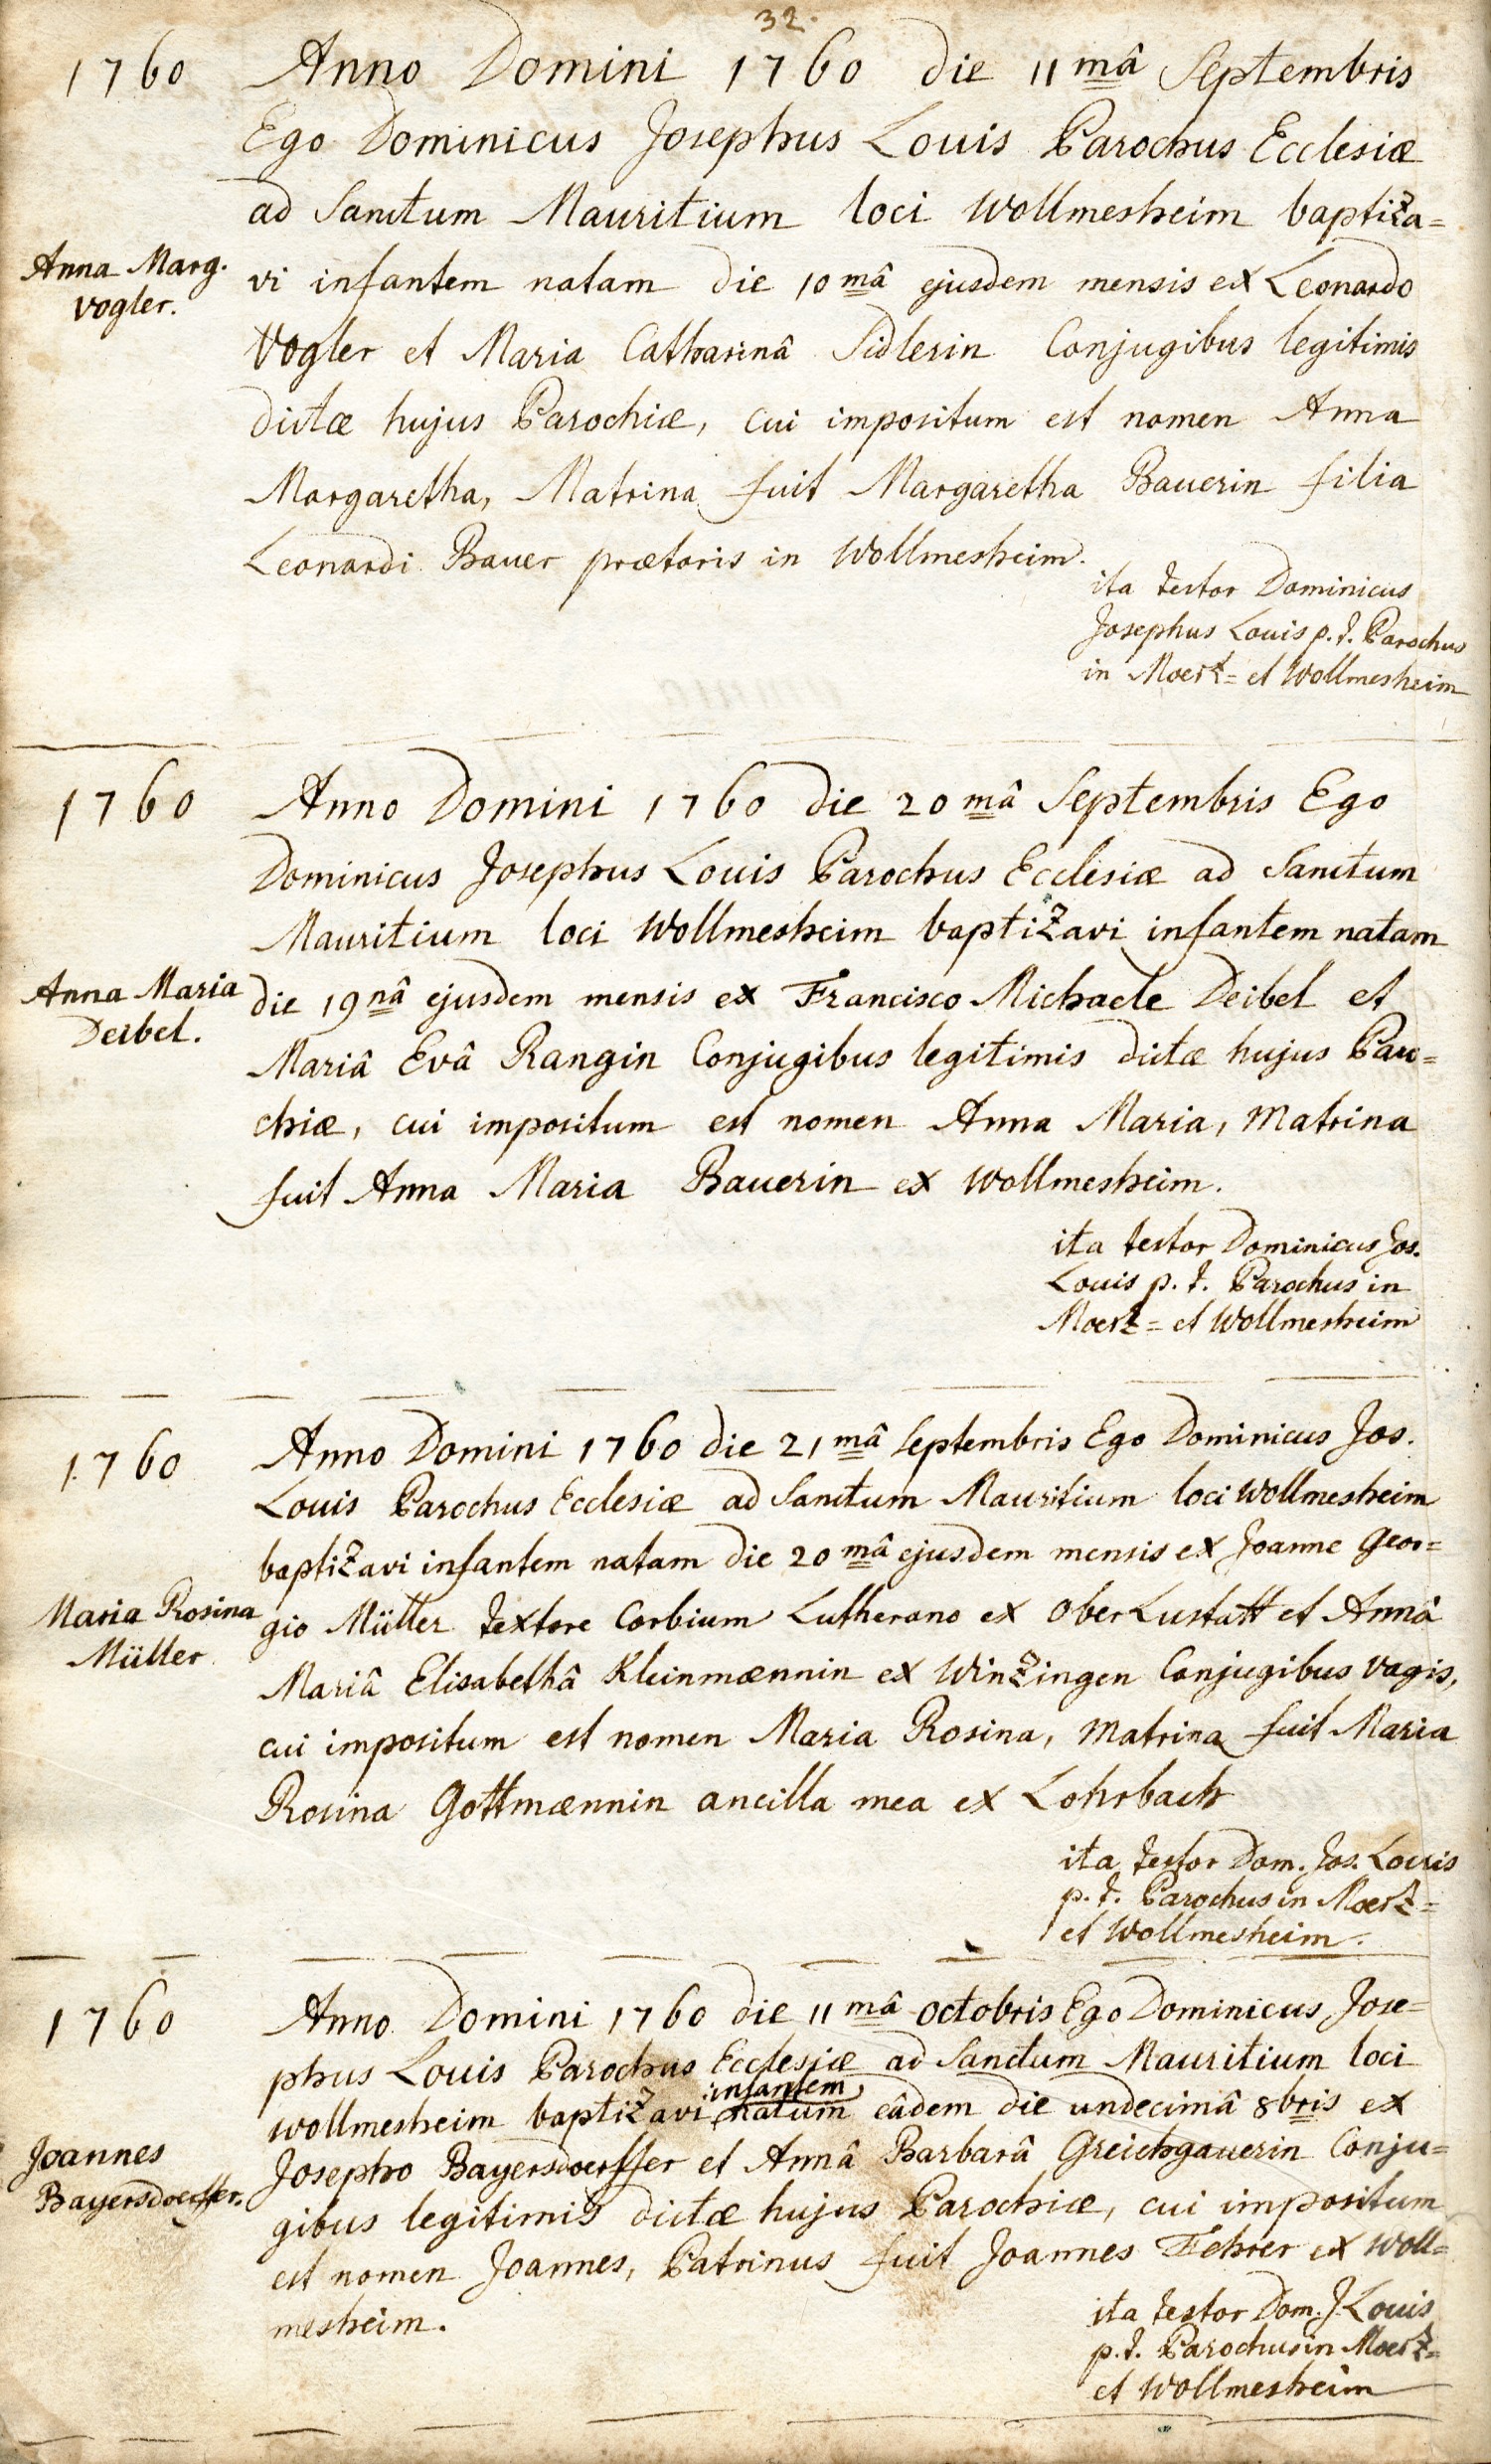 32.
1760
Anno Domini 1760 die 11mâ Septembris
Ego Dominicus Josephus Louis Parochus Ecclesiæ
ad Sanctum Mauritium loci Wollmesheim baptiza=
Anna Marg.
Vogler.
vi infantem natam die 10mâ ejusdem mensis ex Leonardo
Vogler et Maria Catharinâ Sidlerin Conjugibus legitimis
dictæ hujus Parochiæ, cui impositum est nomen Anna
Margaretha, Matrina fuit Margaretha Bauerin filia
Leonardi Bauer prætoris in Wollmesheim.
ita testor Dominicus
Josephus Louis p. t. Parochus
in Moerz= et Wollmesheim
1760
Anno Domini 1760 die 20mâ Septembris Ego
Dominicus Josephus Louis Parochus Ecclesiæ ad Sanctum
Mauritium loci Wollmesheim baptizavi infantem natam
Anna Maria
Deibel.
die 19nâ ejusdem mensis ex Francisco Michaele Deibel et
Mariâ Evâ Rangin Conjugibus legitimis dictæ hujus Paro=
chiæ, cui impositum est nomen Anna Maria, Matrina
fuit Anna Maria Bauerin ex Wollmesheim.
ita testor Dominicus Jos.
Louis p. t. Parochus in
Moerz= et Wollmesheim
1760
Anno Domini 1760 die 21mâ Septembris Ego Dominicus Jos.
Louis Parochus Ecclesiæ ad Sanctum Mauritium loci Wollmesheim
baptizavi infantem natam die 20mâ ejusdem mensis ex Joanne Geor=
Maria Rosina
Müller
gio Müller textore Corbium Lutherano ex Ober Lustatt et Annâ
Mariâ Elisabethâ Kleinmænnin ex Winzingen Conjugibus vagis,
cui impositum est nomen Maria Rosina, Matrina fuit Maria
Rosina Gottmænnin ancilla mea ex Lohrbach
ita testor Dom. Jos. Louis
p. t. Parochus in Moerz=
et Wollmesheim.
1760
Anno Domini 1760 die 11mâ Octobris Ego Dominicus Jose=
phus Louis Parochus Ecclesiæ ad Sanctum Mauritium loci
infantem
wollmesheim baptizavi natum eâdem die undecimâ 8bris ex
Joannes
Bayersdoerffer.
Josepho Bayersdoerffer et Annâ Barbarâ Greichgauerin Conju=
gibus legitimis dictæ hujus Parochiæ, cui impositum
est nomen Joannes, Patrinus fuit Joannes Fehrer ex Woll=
mesheim.
ita testor Dom. J. Louis
p. t. Parochus in Moerz=
et Wollmesheim